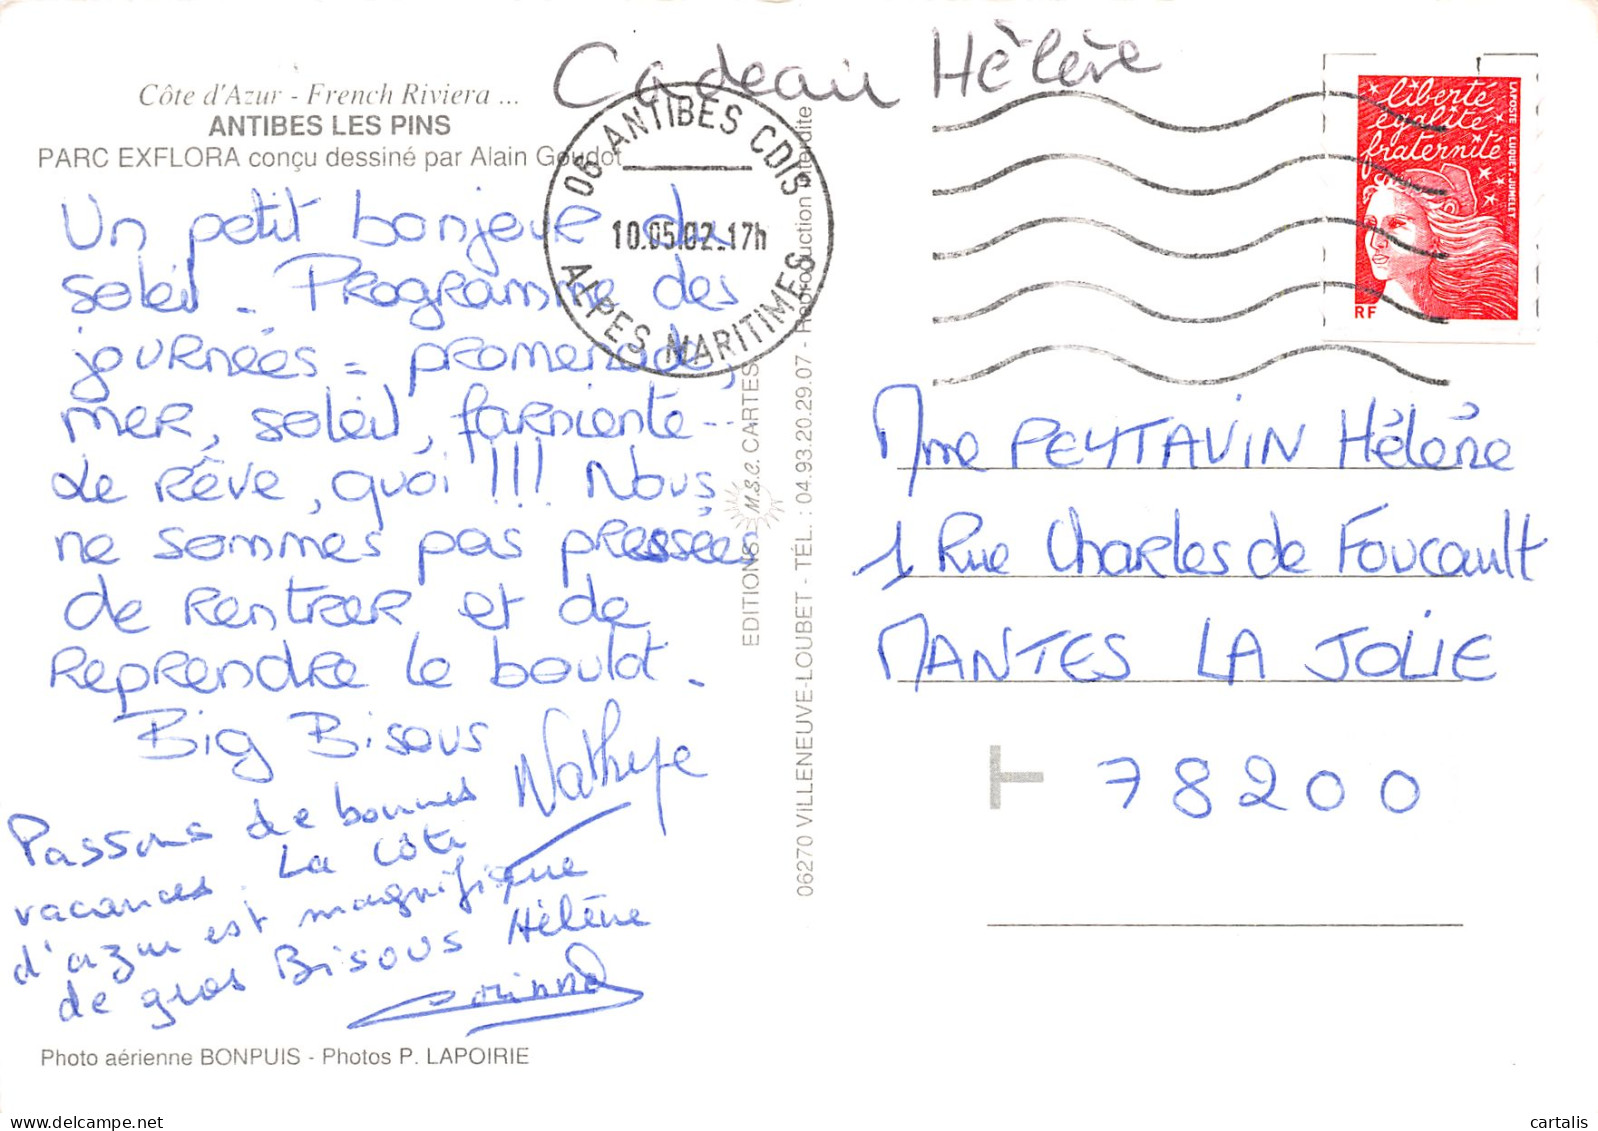 Cadeau Hélène
Côte d'Azur - French Riviera ...
ANTIBES LES PINS
PARC EXFLORA conçu dessiné par Alain Goudot
Un petit bonjour du
soleil. Programme des
journées = promenade,
mer, soleil, farniente..
Le rêve, quoi !!! Nous
ne sommes pas pressées
de rentrer et de
reprendre le boulot.
Big Bisous
Passons de bonnes
vacances. La côte
d'azur est magnifique
de gros Bisous Hélène
Corinne
Photo aérienne BONPUIS - Photos P. LAPOIRIE
06 ANTIBES CDIS
10.05.02.17h
ALPES MARITIMES
EDITIONS M.S.C. CARTES
06270 VILLENEUVE-LOUBET - TÉL. : 04.93.20.29.07 - Reproduction interdite
liberté
égalité
fraternité
LAPOSTE LUQUET, JUMELET
RF
Mme PEYTAVIN Hélène
1 Rue Charles de Foucault
MANTES LA JOLIE
78200
cartalis